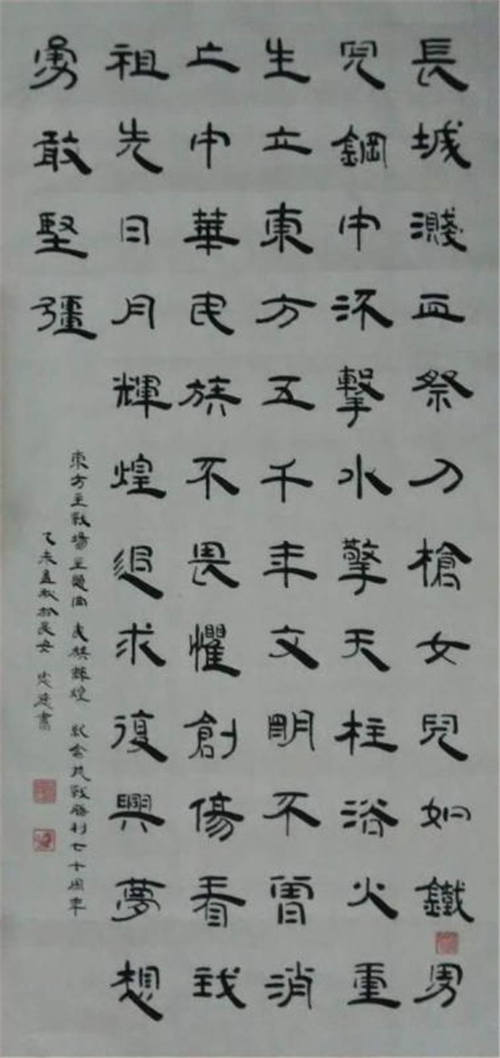 長城濺血祭刀槍女兒如鐵男
兒鋼中流擊水擎天柱浴火重
生立東方五千年文明不曾消
亡中華民族不畏懼創傷看我
祖先日月輝煌追求復興夢想
勇敢堅彊
東方主戰場主題曲 民族輝煌 紀念抗戰勝利七十周年
乙未孟秋於長安 書